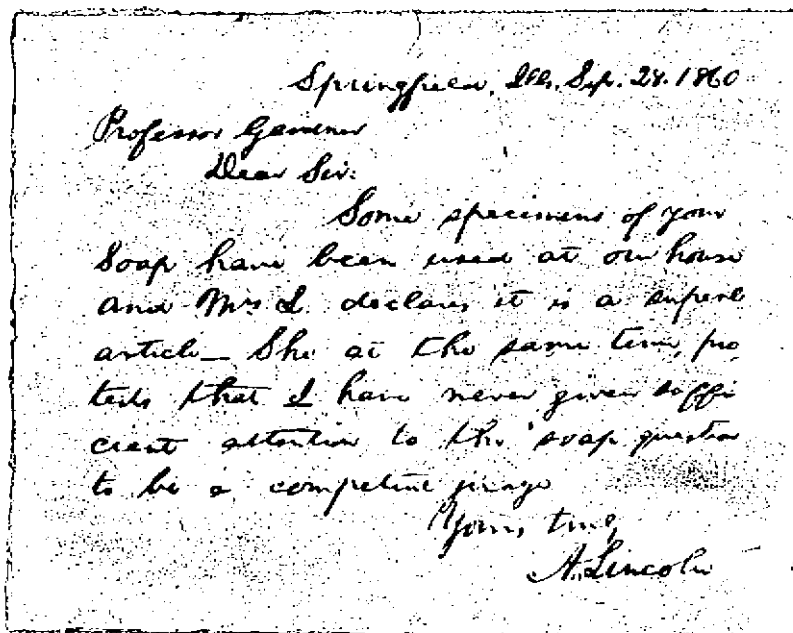 Springfield, Ills, Sep. 28. 1860
Professor Gardner
Dear Sir:
Some specimens of your
Soap have been used at our house
and Mrs L. declares it is a superb
article— She at the same time, pro
tests that I have never given suffi
cient attention to the soap question
to be a competent judge
Yours truly
A. Lincoln